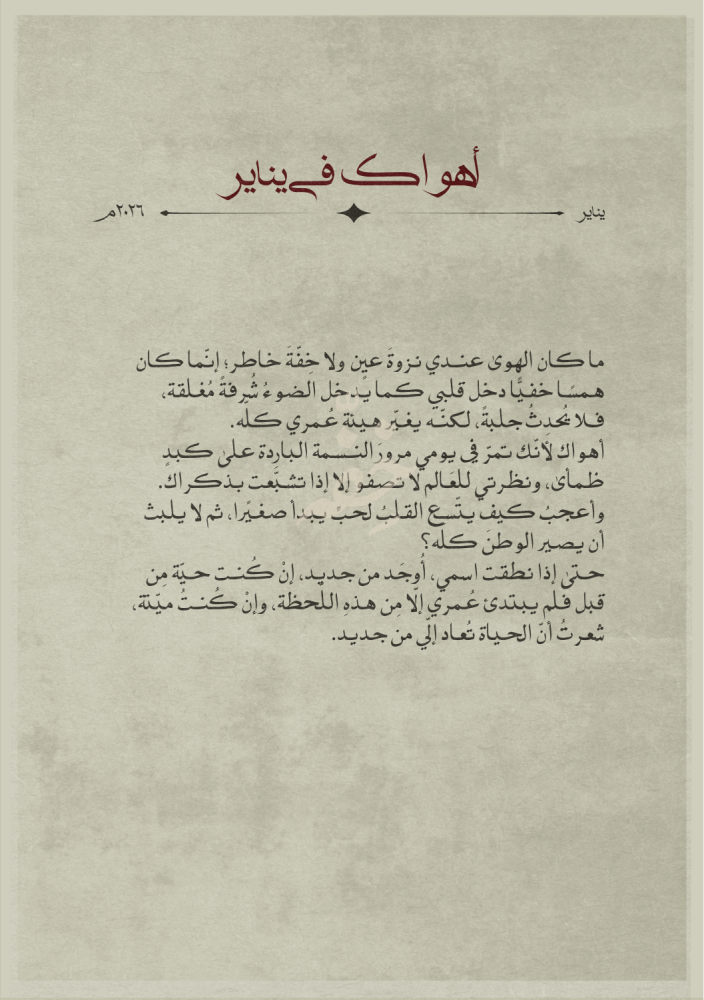 أهواك في يناير
يناير
٢٠٢٦م
ما كان الهوىٰ عندي نزوةَ عين ولا خِفّةَ خاطر؛ إنّما كان
همسًا خفيًّا دخل قلبي كما يَدخل الضوءُ شُرفةً مُغلقة،
فلا يُحدثُ جلبةً، لكنّه يغيّر هيئة عُمري كلّه.
أهواك لأنّك تمرّ في يومي مرورَ النسمة البارِدة علىٰ كبدٍ
ظمأىٰ، ونظرتي للعَالم لا تصفو إلا إذا تشبّعت بذكراك.
وأعجبُ كيف يتّسع القلبُ لحبّ يبدأ صغيًرا، ثم لا يلبث
أن يصير الوطنَ كله؟
حتىٰ إذا نطقت اسمي، أُوجَد من جديد، إنْ كُنت حيّة مِن
قبل فلم يبتدئ عُمري إلّا مِن هذهِ اللحظة، وإنْ كُنتُ ميّتة،
شعرتُ أنّ الحياة تُعاد إلّي من جديد.